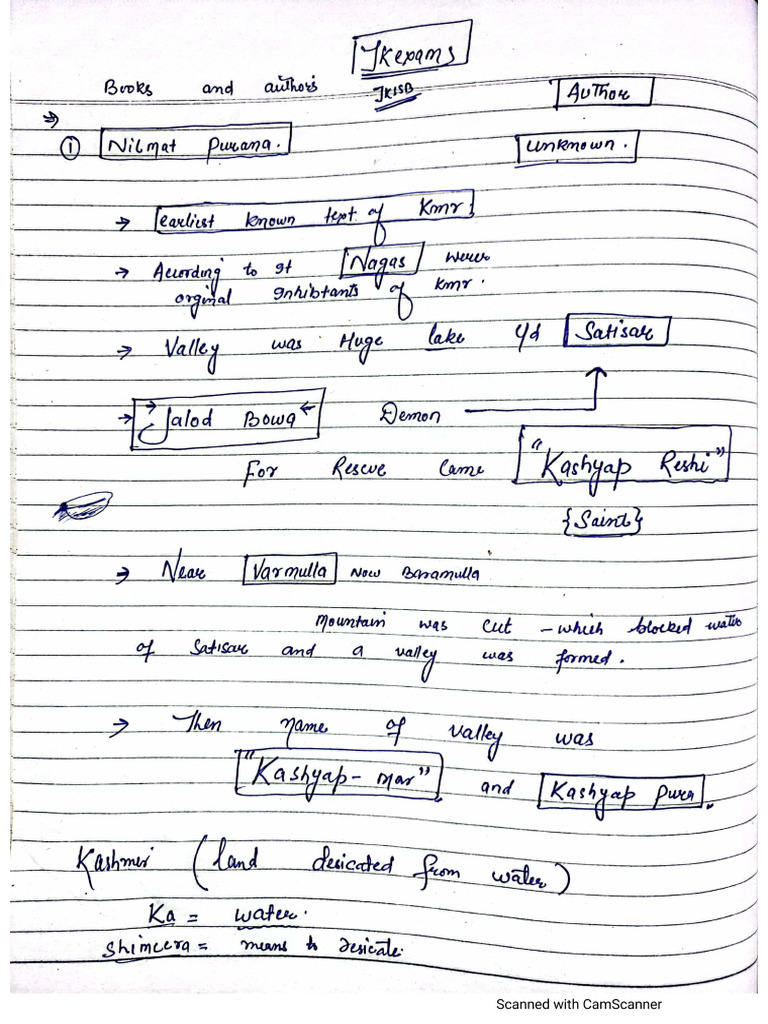 JKexams
Books and authors JKSSB Author
① Nilmat Purana. Unknown.
→ earliest known text of Kmr
→ According to It Nagas were
orginal Inhibtants of Kmr.
→ Valley was Huge lake c/d Satisar
→ Jalod Bowa Demon
For Rescue Came "Kashyap Reshi"
{Saint}
→ Near Varmulla Now Baramulla
Mountain was cut - which blocked water
of Satisar and a valley was formed.
→ Then name of valley was
"Kashyap-mar" and Kashyap Pura.
Kashmir (land desicated from water)
Ka = water.
Shimeera = means to desicate.
Scanned with CamScanner